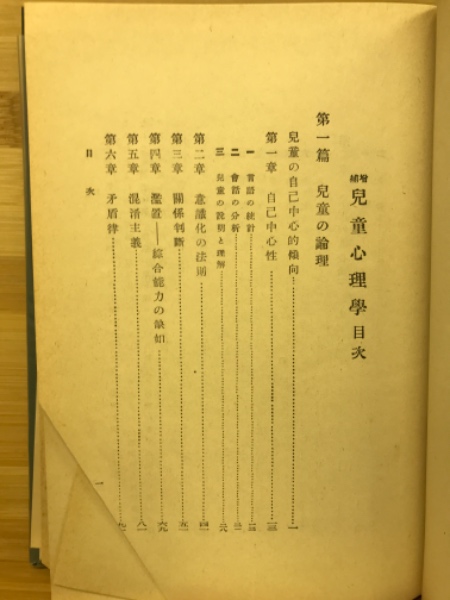 增補 兒童心理學 目次
第一篇 兒童の論理
兒童の自己中心的傾向 一
第一章 自己中心性
一 言語の統計
二 會話の分析
三 兒童の說明と理解 二八
第二章 意識化の法則 四一
第三章 關係判斷 五一
第四章 濫置——綜合能力の缺如 六九
第五章 混淆主義 八一
第六章 矛盾律 九一
目次 一